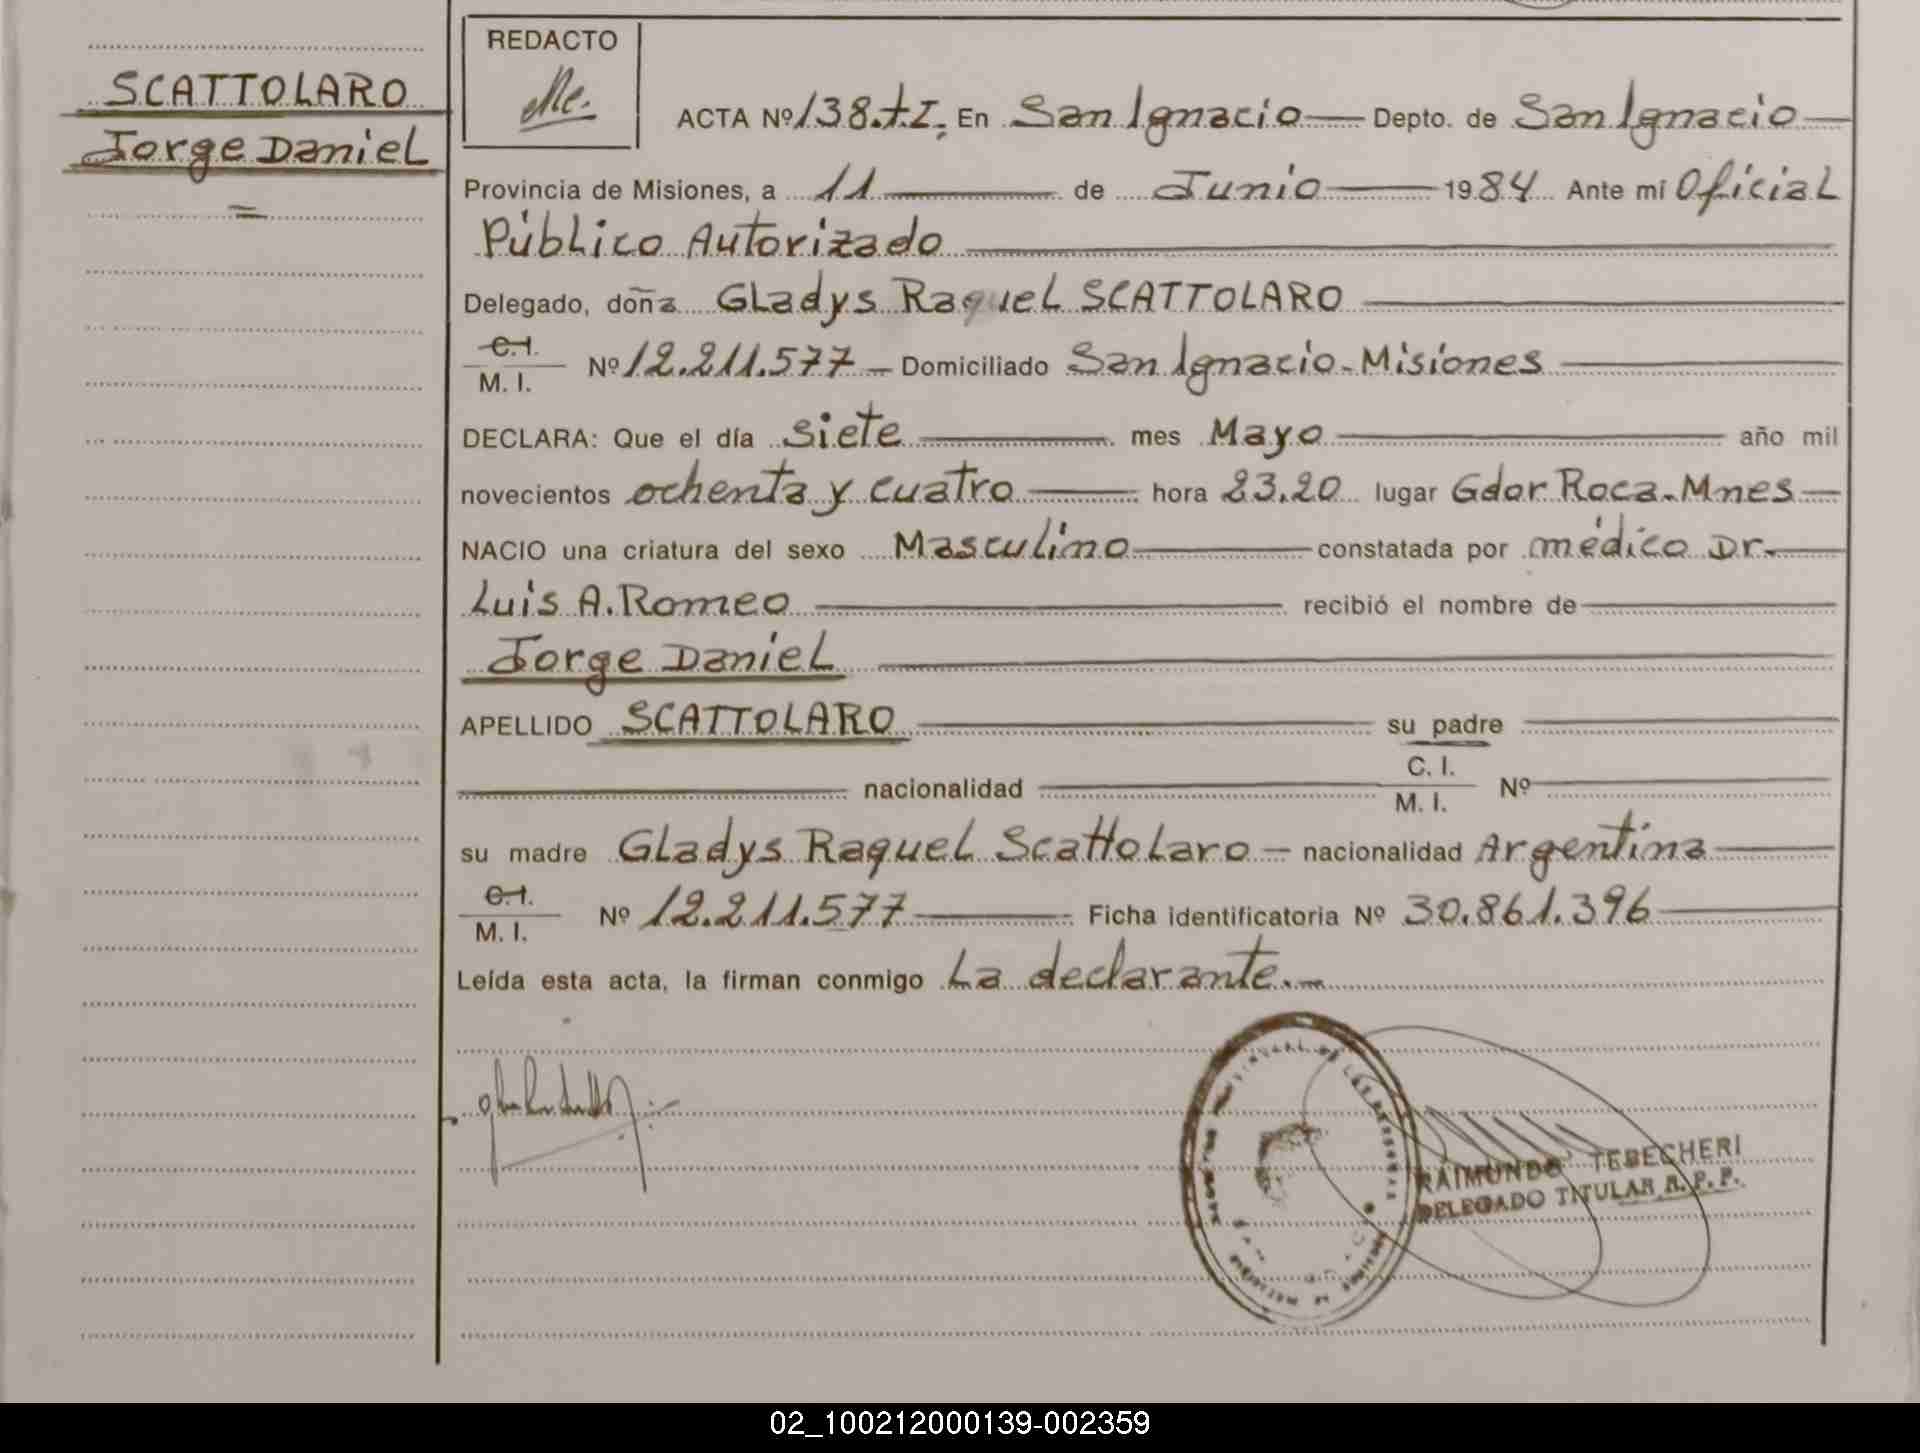 SCATTOLARO
Jorge Daniel
=
REDACTO
ACTA Nº 138.tI. En San Ignacio Depto. de San Ignacio
Provincia de Misiones, a 11 de Junio 1984 Ante mí Oficial
Público Autorizado
Delegado, doña Gladys Raquel SCATTOLARO
C.I.
M. I. Nº 12.211.577 Domiciliado San Ignacio-Misiones
DECLARA: Que el día siete mes Mayo año mil
novecientos ochenta y cuatro hora 23.20 lugar Gdor Roca-Mnes
NACIO una criatura del sexo Masculino constatada por médico Dr.
Luis A. Romeo recibió el nombre de
Jorge Daniel
APELLIDO SCATTOLARO su padre
nacionalidad C. I. Nº
M. I.
su madre Gladys Raquel Scattolaro nacionalidad Argentina
C.I.
M. I. Nº 12.211.577 Ficha identificatoria Nº 30.861.396
Leída esta acta, la firman conmigo La declarante.
RAIMUNDO TEBECHERI
DELEGADO TITULAR R.P.P.
02_100212000139-002359